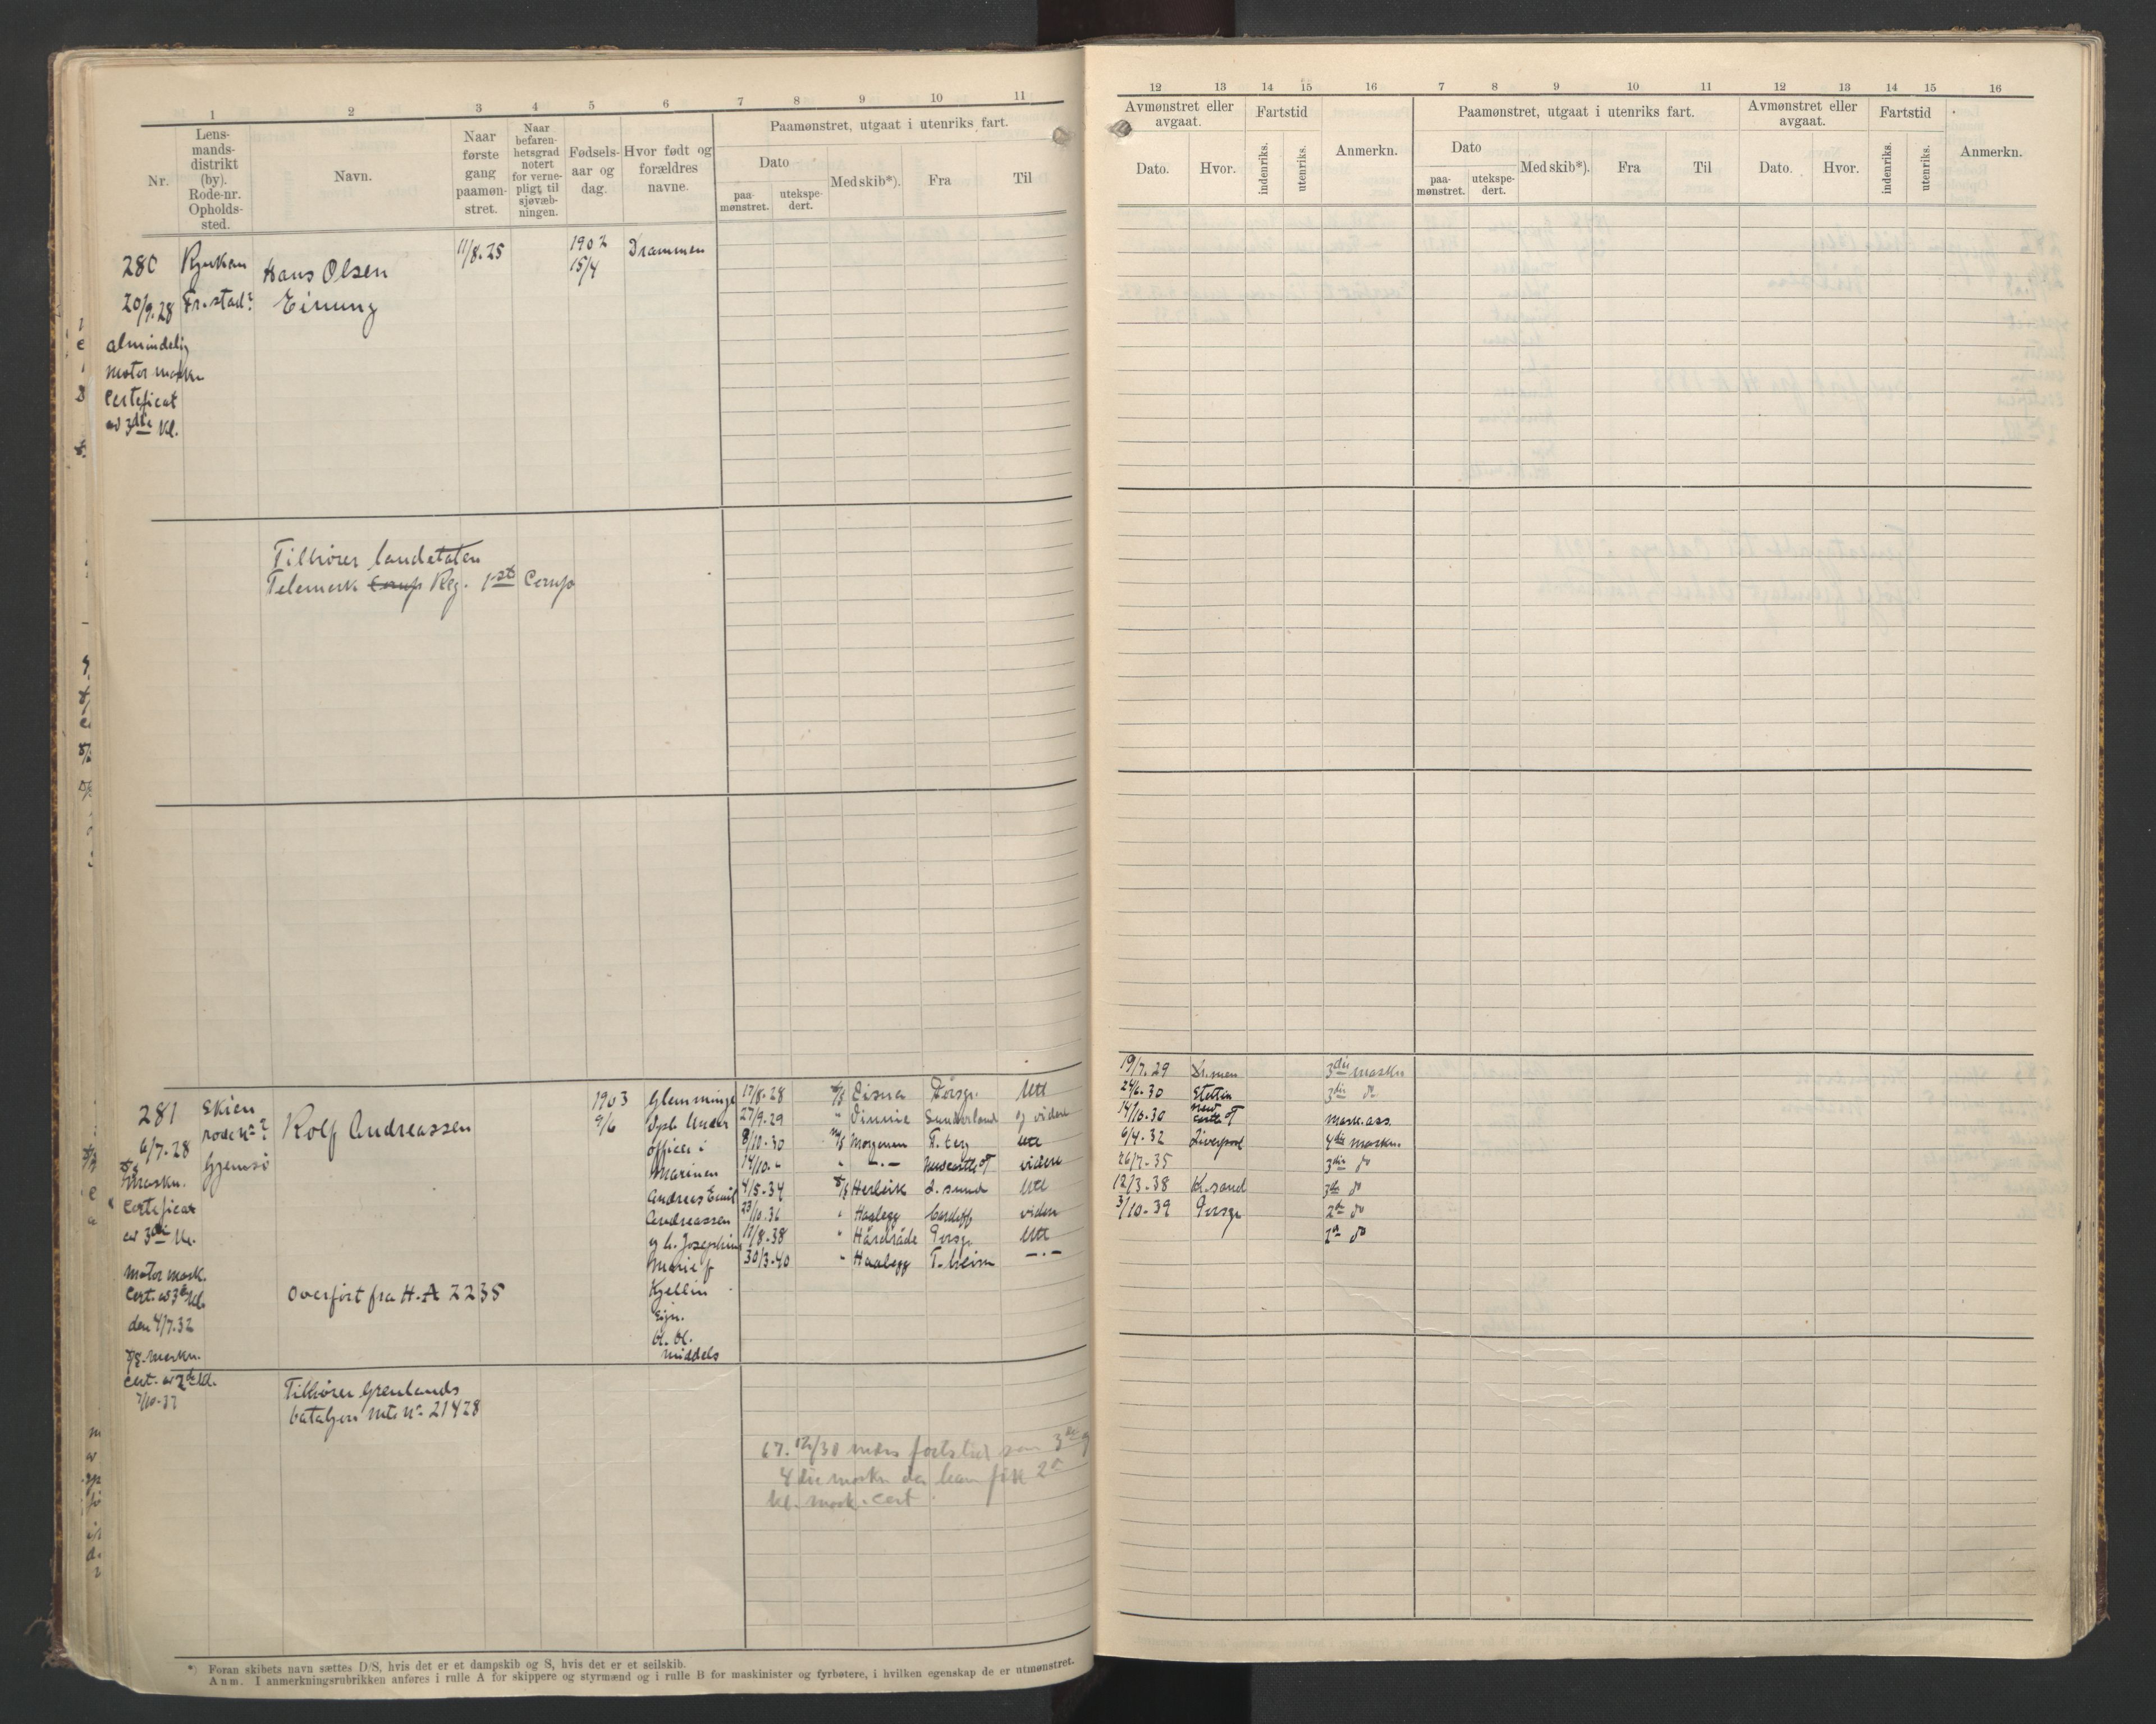 1 2 3 4 5 6 7 8 9 10 11
Nr.
Lens-
mands-
distrikt
(by).
Rode-nr.
Opholds-
sted.
Navn.
Naar
første
gang
paamøn-
stret.
Naar
befaren-
hetsgrad
notert
for verne-
pligt til
sjøvæb-
ningen.
Fødsels-
aar og
dag.
Hvor født og
forældres
navne.
Paamønstret, utgaat i utenriks fart.
Dato
paa-
mønstret.
utekspe-
dert.
Med skib*).
Fra
Til
280 Rjukan Hans Olsen 11/8.25 1902 Drammen
15/4
20/9.28 Fr.stad? Einung
almindelig
motor maskn
Certeficat
av 3die kl.
Tilhører landetaten
Telemark Comp Reg. 1st Comp
281 Skien Rolf Andreassen 1903 Glemminge 17/8.28 Eisna Porsgr. Utl
6/7.28 rode no 2 9/6 27/9.29 " Vinnie Sunderland og videre
Gjemsø officer i 8/10.30 M/S Morgenen T.berg Utl
Marinen 14/10." " -"- Newcastle oT videre
Maskn. Andreas Emil 4/5.34 Herleik L.sund Utl
Certeficat Andreassen 23/10.36 " Haalegg Cardiff videre
av 3die kl. og h. Josephine 17/8.38 " Hårdråde Porsgr. Utl
Marie f 30/3.40 " Haalegg T.heim -"-
motor mask. Kjellin
Cert. av 3die kl. Overført fra H.A 2235 Eijn.
den 4/7.32 bl. bl.
maskn. middels
cert. av 2de kl. Tilhører Grenlands
7/10.37 bataljon mtr no 21428
67. 12/30 mdrs fartstid som 3die og
4die maskn da han fik 2d
kl. mask. cert.
*) Foran skibets navn sættes D/S, hvis det er et dampskib og S, hvis det er et seilskib.
Anm. I anmerkningsrubrikken anføres i rulle A for skippere og styrmænd og i rulle B for maskinister og fyrbøtere, i hvilken egenskap de er utmønstret.
12 13 14 15 16 7 8 9 10 11 12 13 14 15 16
Avmønstret eller
avgaat.
Dato.
Hvor.
Fartstid
indenriks.
utenriks.
Anmerkn.
Paamønstret, utgaat i utenriks fart.
Dato
paa-
mønstret.
utekspe-
dert.
Med skib*).
Fra
Til
Avmønstret eller
avgaat.
Dato.
Hvor.
Fartstid
indenriks.
utenriks.
Anmerkn.
19/7.29 Dr.men 3die maskn
24/6.30 Stettin 3die do
14/10.30 New castle oT Mask.ass.
6/4-32 Liverpool 4die maskn.
26/7-35 3die do
12/3-38 K.sand 3die do
3/10-39 Porsgr 2de do
2de do